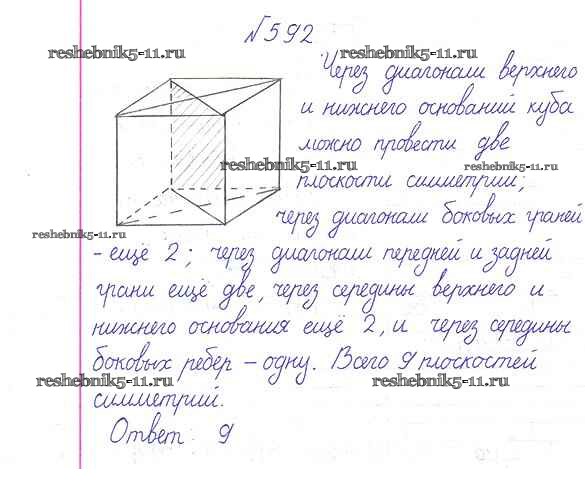 №592
reshebnik5-11.ru
reshebnik5-11.ru
Через диагонали верхнего
и нижнего оснований куба
можно провести две
reshebnik5-11.ru
reshebnik5-11.ru
плоскости симметрии;
через диагонали боковых граней
reshebnik5-11.ru
- ещё 2; через диагонали передней и задней
грани ещё две, через середины верхнего и
нижнего основания ещё 2, и через середины
боковых ребер – одну. Всего 9 плоскостей
reshebnik5-11.ru
reshebnik5-11.ru
симметрий.
Ответ: 9